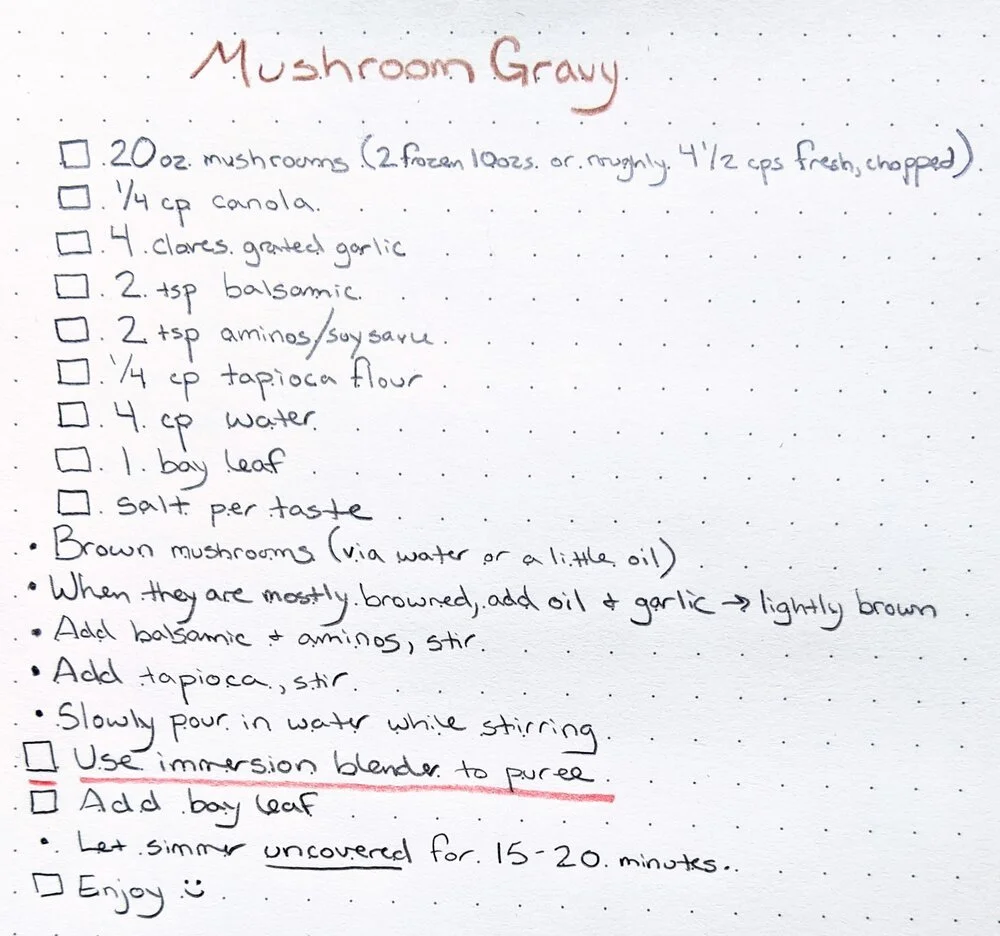 Mushroom Gravy
20 oz. mushrooms (2 frozen 10ozs. or roughly 4 1/2 cps fresh, chopped)
1/4 cp canola
4 cloves grated garlic
2 tsp balsamic
2 tsp aminos/soy sauce
1/4 cp tapioca flour
4 cp water
1 bay leaf
salt per taste
• Brown mushrooms (via water or a little oil)
• When they are mostly browned, add oil + garlic → lightly brown
• Add balsamic + aminos, stir
• Add tapioca, stir
• Slowly pour in water while stirring
Use immersion blender to puree
Add bay leaf
• Let simmer uncovered for 15-20 minutes.
Enjoy :)